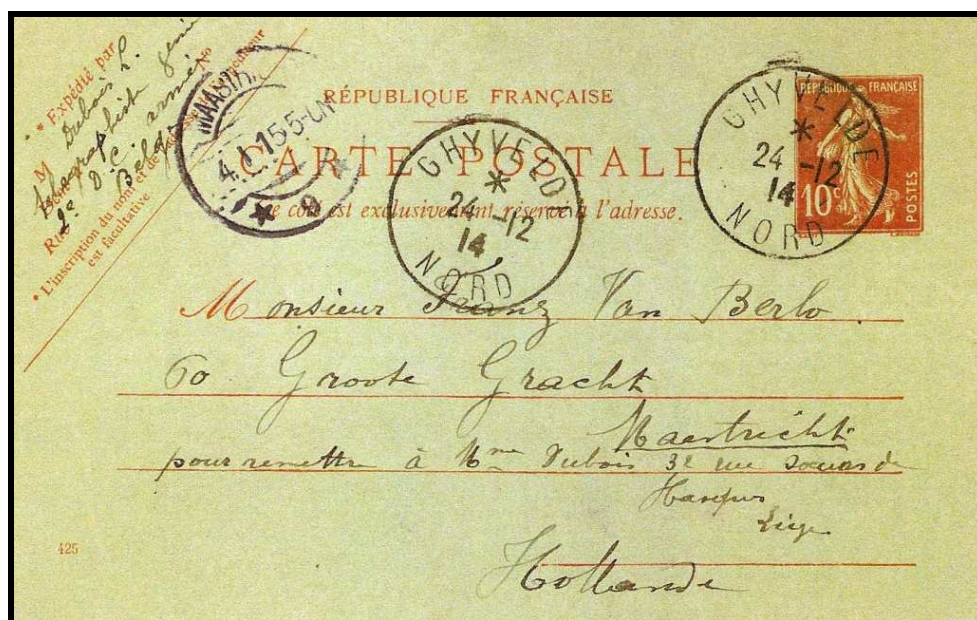 * Expédié par
M Dubois L.
télégraphiste génie
2e D C armée
Belge
Rue
No
* L'inscription du nom et de l'adresse de l'expéditeur
est facultative
MAASTR
4.1.15 5-6N
* 9 *
RÉPUBLIQUE FRANÇAISE
CARTE POSTALE
Ce côté est exclusivement réservé à l'adresse.
GHYVELDE
*
24 -12
14
NORD
GHYVELDE
*
24 -12
14
NORD
RÉPUBLIQUE FRANÇAISE
10c
POSTES
Monsieur Franz Van Berlo
60 Groote Gracht
Maestricht
pour remettre à Mme Dubois 32 rue
Liège
425
Hollande